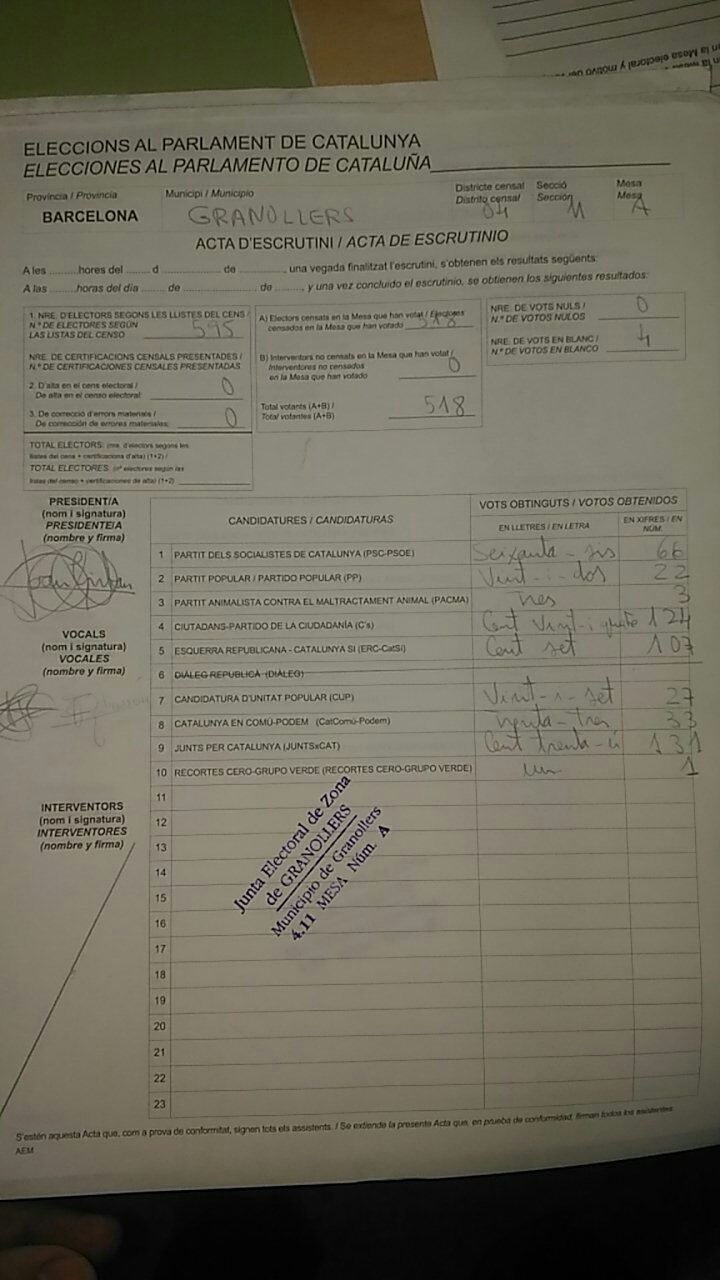 en la Mesa electoral y motivo del
ELECCIONS AL PARLAMENT DE CATALUNYA
ELECCIONES AL PARLAMENTO DE CATALUÑA
Província / Provincia
BARCELONA
Municipi / Municipio
GRANOLLERS
Districte censal
Distrito censal
04
Secció
Sección
11
Mesa
Mesa
A
ACTA D'ESCRUTINI / ACTA DE ESCRUTINIO
A les .........hores del ........ d ................. de ............, una vegada finalitzat l'escrutini, s'obtenen els resultats següents:
A las .........horas del día ........ de .................. de ........., y una vez concluido el escrutinio, se obtienen los siguientes resultados:
1. NRE. D'ELECTORS SEGONS LES LLISTES DEL CENS /
N.º DE ELECTORES SEGÚN
LAS LISTAS DEL CENSO 595
NRE. DE CERTIFICACIONS CENSALS PRESENTADES /
N.º DE CERTIFICACIONES CENSALES PRESENTADAS
2. D'alta en el cens electoral /
De alta en el censo electoral: 0
3. De correcció d'errors materials /
De corrección de errores materiales: 0
TOTAL ELECTORS: (nre. d'electors segons les
llistes del cens + certificacions d'alta) (1+2) /
TOTAL ELECTORES: (nº electores según las
listas del censo + certificaciones de alta) (1+2)
A) Electors censats en la Mesa que han votat / Electores
censados en la Mesa que han votado 518
B) Interventors no censats en la Mesa que han votat /
Interventores no censados
en la Mesa que han votado 0
Total votants (A+B) /
Total votantes (A+B) 518
NRE. DE VOTS NULS /
N.º DE VOTOS NULOS 0
NRE. DE VOTS EN BLANC /
N.º DE VOTOS EN BLANCO 4
PRESIDENT/A
(nom i signatura)
PRESIDENTE/A
(nombre y firma)
VOCALS
(nom i signatura)
VOCALES
(nombre y firma)
INTERVENTORS
(nom i signatura)
INTERVENTORES
(nombre y firma)
CANDIDATURES / CANDIDATURAS
VOTS OBTINGUTS / VOTOS OBTENIDOS
EN LLETRES / EN LETRA
EN XIFRES / EN NÚM.
1 PARTIT DELS SOCIALISTES DE CATALUNYA (PSC-PSOE) Seixanta-sis 66
2 PARTIT POPULAR / PARTIDO POPULAR (PP) Vint-i-dos 22
3 PARTIT ANIMALISTA CONTRA EL MALTRACTAMENT ANIMAL (PACMA) tres 3
4 CIUTADANS-PARTIDO DE LA CIUDADANÍA (C's) Cent Vint-i-quatre 124
5 ESQUERRA REPUBLICANA - CATALUNYA SÍ (ERC-CatSí) Cent set 107
6 DIÀLEG REPUBLICÀ (DIÀLEG)
7 CANDIDATURA D'UNITAT POPULAR (CUP) Vint-i-set 27
8 CATALUNYA EN COMÚ-PODEM (CatComú-Podem) trenta-tres 33
9 JUNTS PER CATALUNYA (JUNTSxCAT) Cent trenta-ú 131
10 RECORTES CERO-GRUPO VERDE (RECORTES CERO-GRUPO VERDE) un 1
11
12
13
14
15
16
17
18
19
20
21
22
23
Junta Electoral de Zona
de GRANOLLERS
Municipio de Granollers
4.11 MESA Núm. A
S'estén aquesta Acta que, com a prova de conformitat, signen tots els assistents. / Se extiende la presente Acta que, en prueba de conformidad, firman todos los asistentes.
AEM